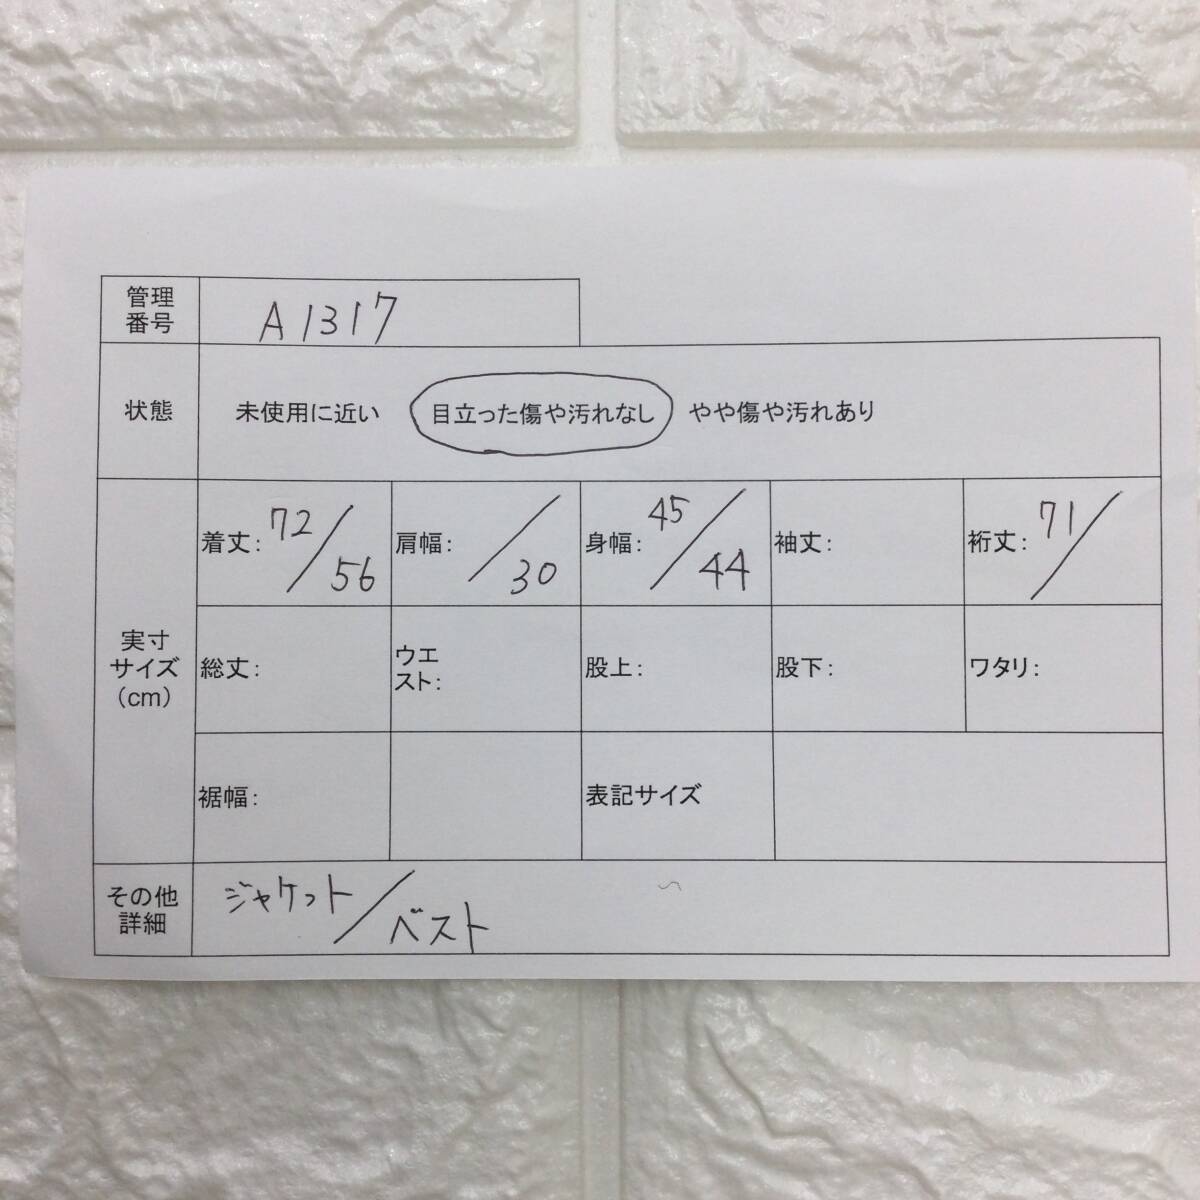 管理
番号
A1317
状態
未使用に近い 目立った傷や汚れなし やや傷や汚れあり
実寸
サイズ
(cm)
着丈: 72/56
肩幅: /30
身幅: 45/44
袖丈:
裄丈: 71/
総丈:
ウエ
スト:
股上:
股下:
ワタリ:
裾幅:
表記サイズ
その他
詳細
ジャケット/ベスト